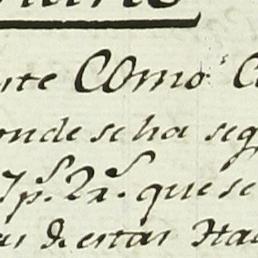 rte Como
onde se ha seg
7p.s 2r.s que se
de estas Ha